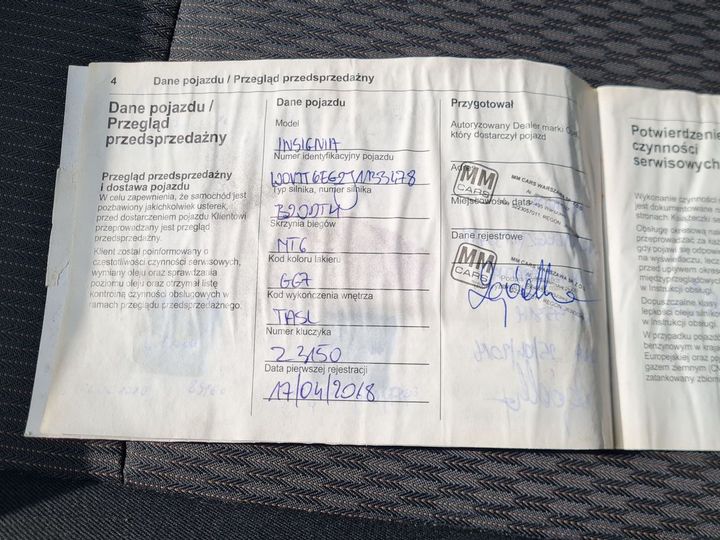 4 Dane pojazdu / Przegląd przedsprzedażny
Dane pojazdu /
Przegląd
przedsprzedażny
Przegląd przedsprzedażny
i dostawa pojazdu
W celu zapewnienia, że samochód jest
pozbawiony jakichkolwiek usterek,
przed dostarczeniem pojazdu Klientowi
przeprowadzany jest przegląd
przedsprzedażny.
Klient został poinformowany o
częstotliwości czynności serwisowych,
wymiany oleju oraz sprawdzania
poziomu oleju oraz otrzymał listę
kontrolną czynności obsługowych w
ramach przeglądu przedsprzedażnego.
Dane pojazdu
Model
INSIGNIA
Numer identyfikacyjny pojazdu
Typ silnika, numer silnika
B20DTH
Skrzynia biegów
MT6
Kod koloru lakieru
GG7
Kod wykończenia wnętrza
TASL
Numer kluczyka
Z3150
Data pierwszej rejestracji
17/04/2018
Przygotował
Autoryzowany Dealer marki
który dostarczył pojazd
MM
CARS
MM CARS WARSZAWA
Miejscowość, data
Dane rejestrowe
MM
CARS
MM CARS WARSZAWA
Potwierdzenie
czynności
serwisowych
Wykonanie czynności
jest dokumentowane
stronach Książeczki
Obsługę okresową
przeprowadzać za
gdy pojawi się odpow
na wyświetlaczu, lecz
przed upływem okres
międzyprzeglądowe
w Instrukcji obsługi.
Dopuszczalne klasy
lepkości oleju silniko
w Instrukcji obsługi
W przypadku pojazdó
benzynowym w kraja
Europejskiej oraz po
gazem ziemnym (CN
zatankowany zbiorn